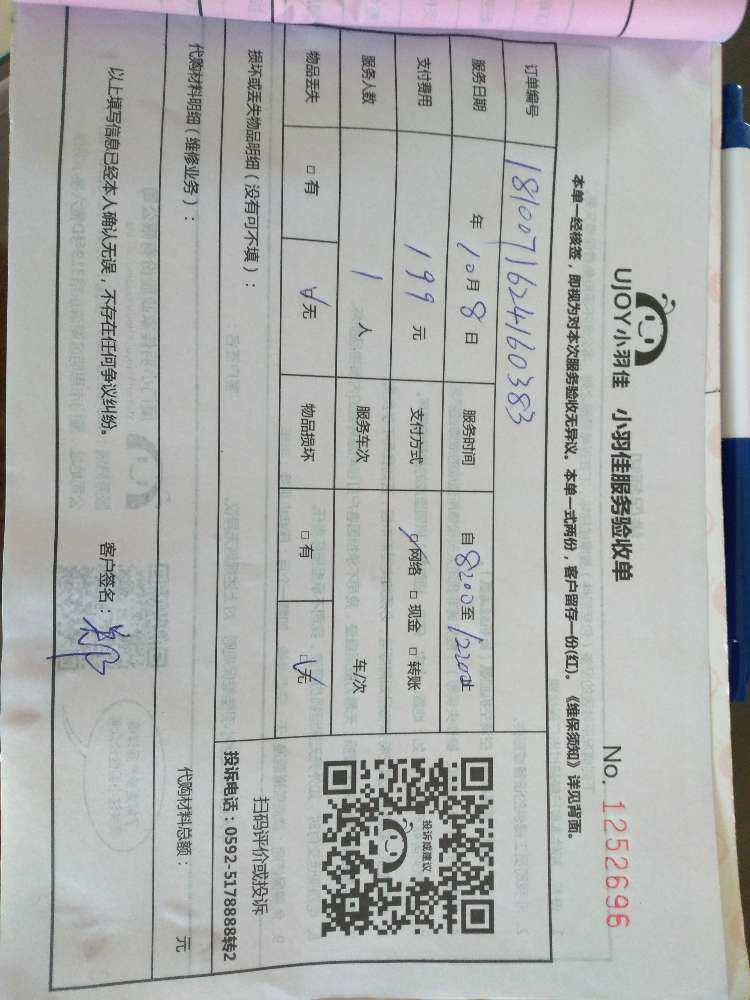 UJOY小羽佳 小羽佳服务验收单
No. 1252696
本单一经核签，即视为对本次服务验收无异议。本单一式两份，客户留存一份(红)。《维保须知》详见背面。
订单编号 1810071624160383
服务日期 年 10月 8日 服务时间 自 8:00至 12:00止
支付费用 199 元 支付方式 ☑网络 □现金 □转账
服务人数 1 人 服务车次 车/次
物品丢失 □有 ☑无 物品损坏 □有 ☑无
投诉或建议
扫码评价或投诉
投诉电话：0592-5178888转2
损坏或丢失物品明细（没有可不填）：
代购材料明细（维修业务）： 代购材料总额： 元
以上填写信息已经本人确认无误，不存在任何争议纠纷。 客户签名：